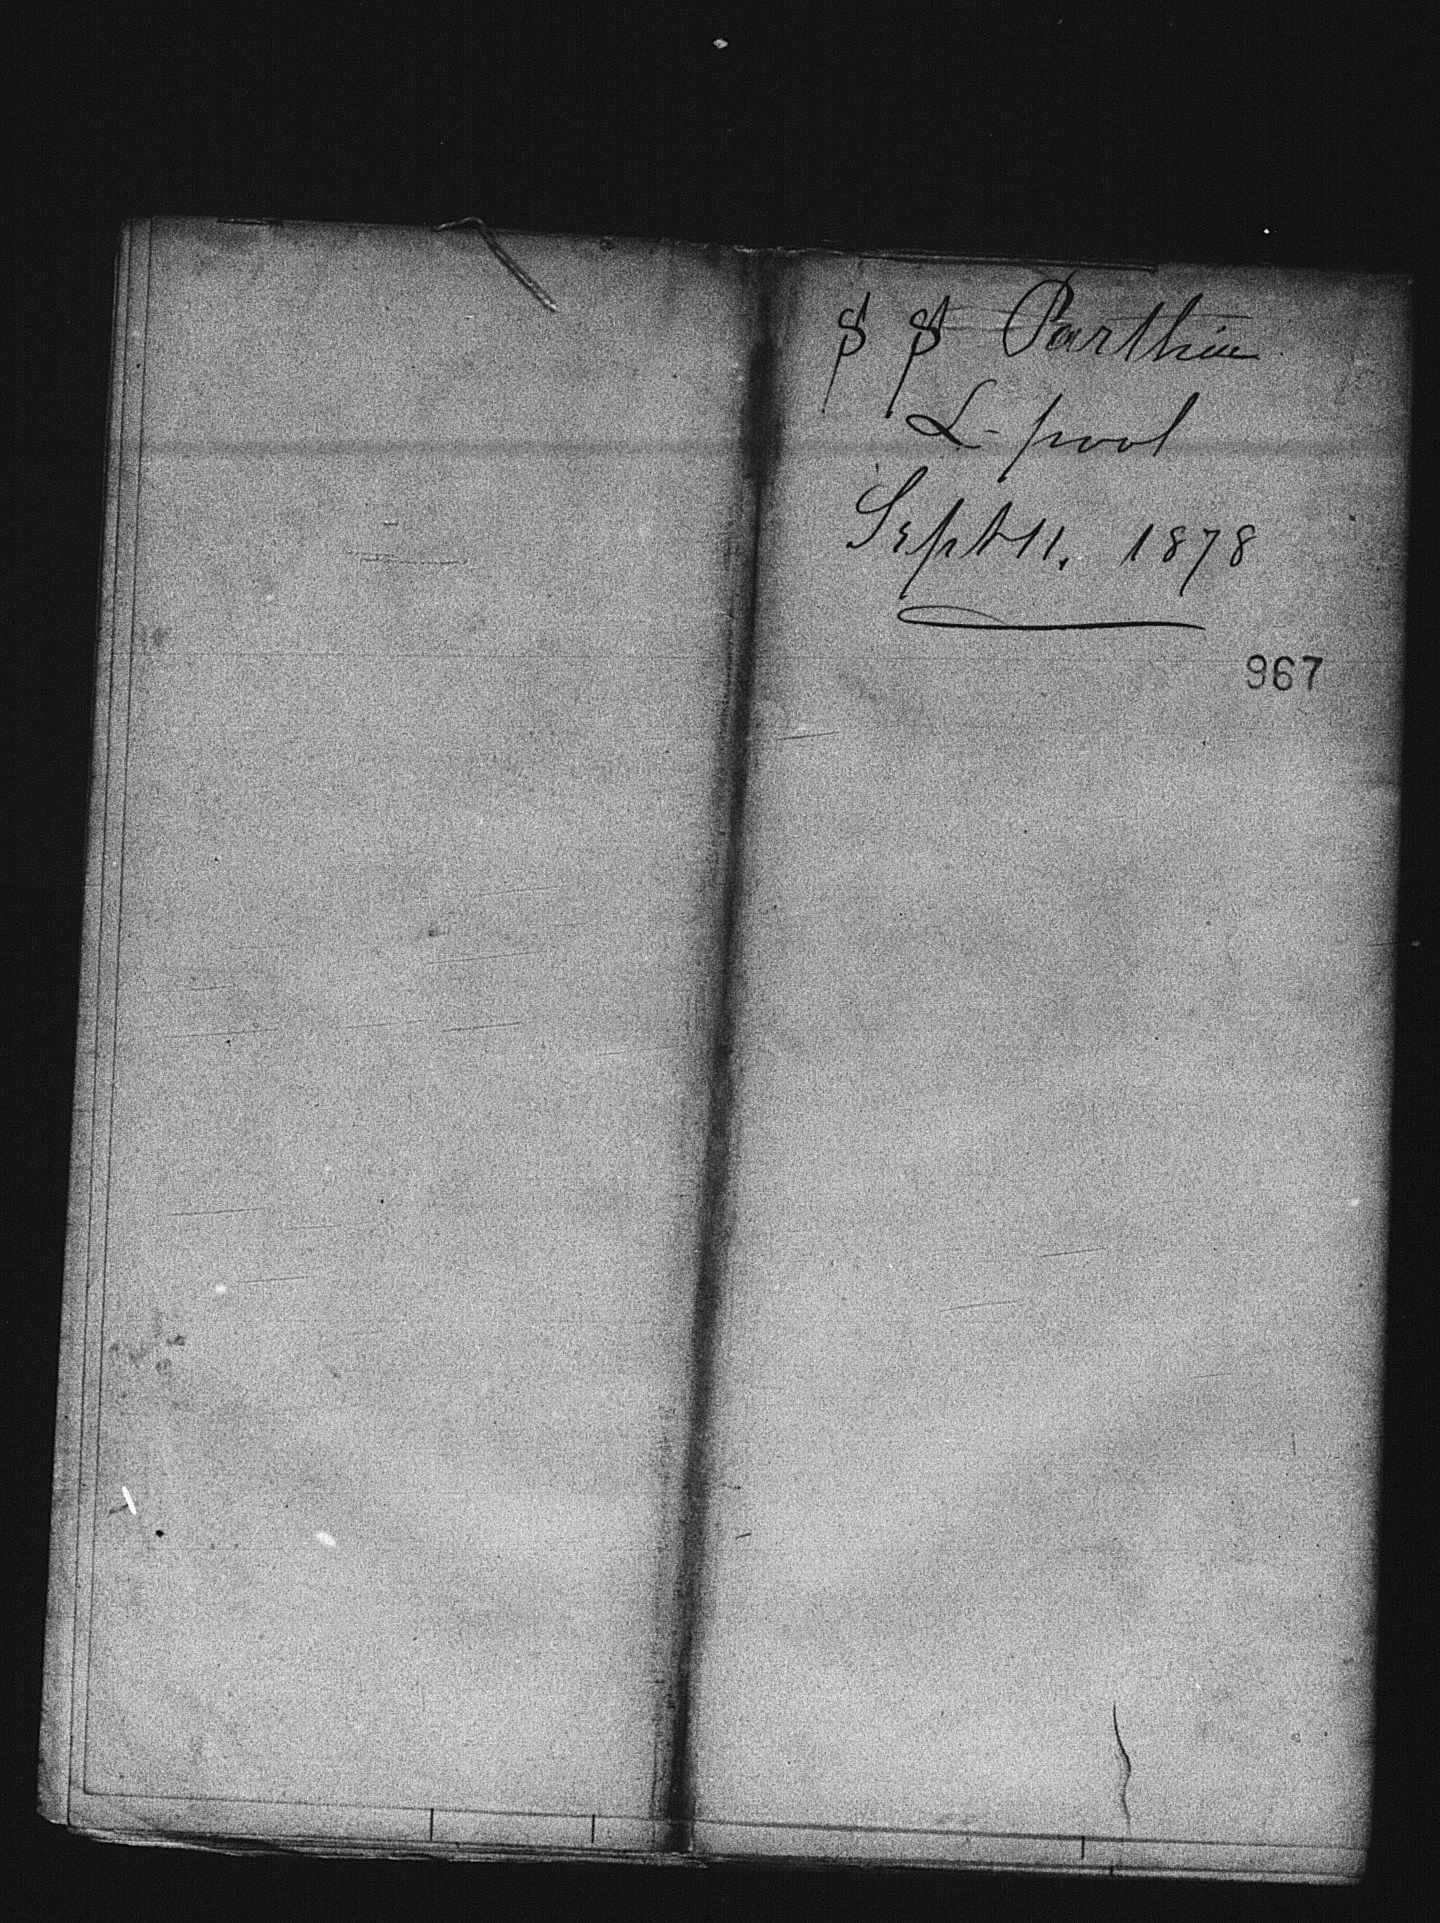 S S Parthia
L-pool
Sept 11. 1878
967